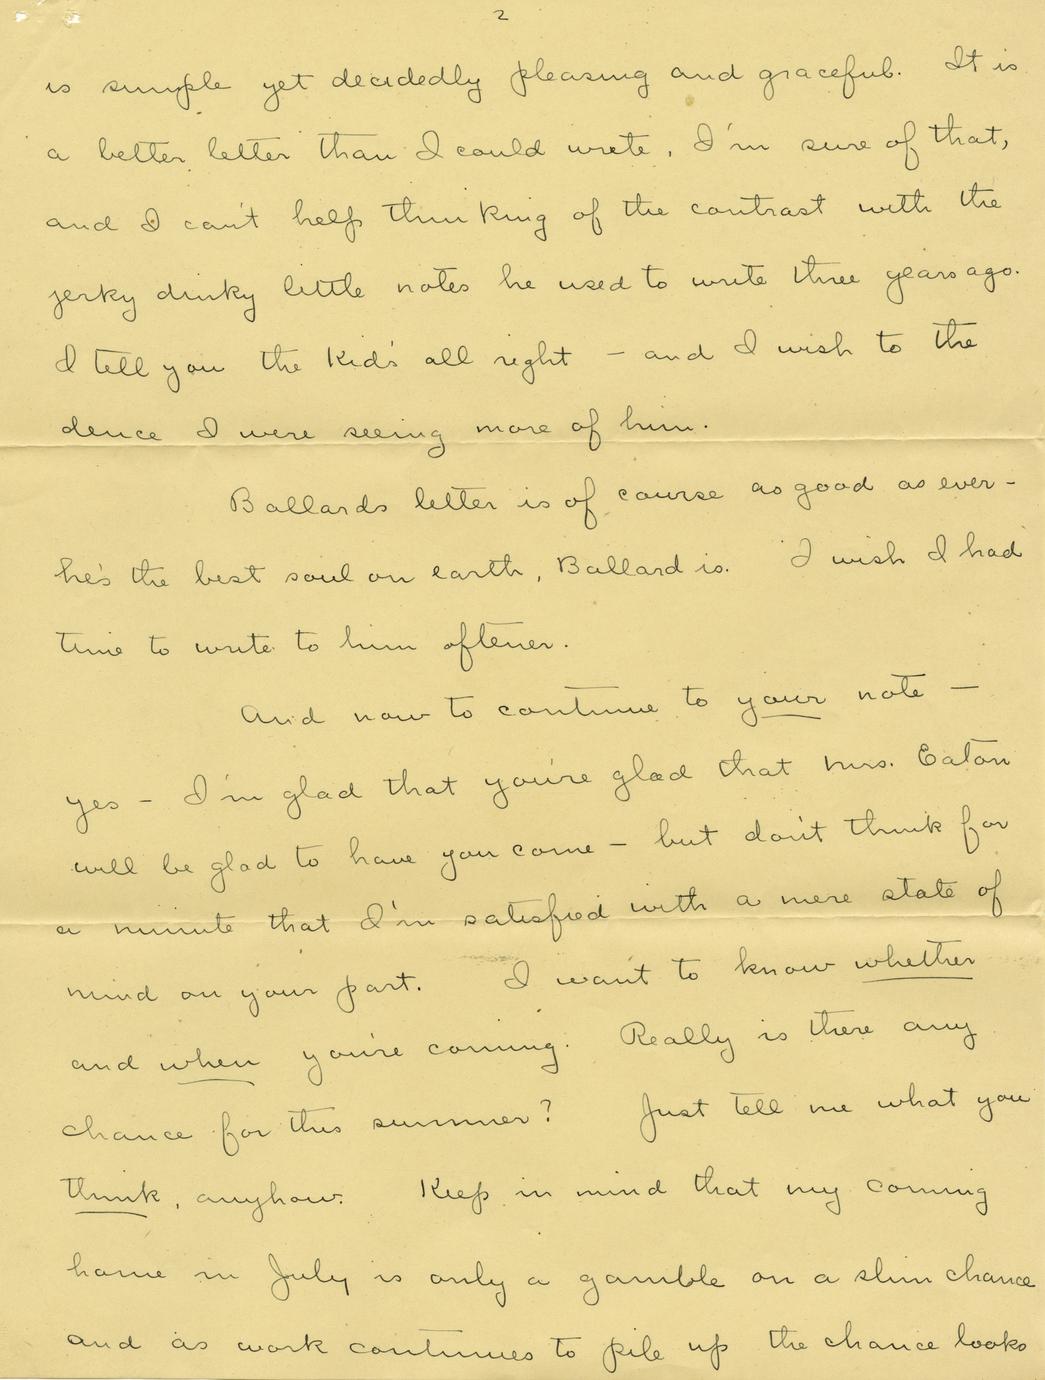 2
is simple yet decidedly pleasing and graceful. It is
a better letter than I could write, I'm sure of that,
and I can't help thinking of the contrast with the
jerky dinky little notes he used to write three years ago.
I tell you the Kid's all right – and I wish to the
dence I were seeing more of him.
Ballards letter is of course as good as ever –
he's the best soul on earth, Ballard is. I wish I had
time to write to him oftener.
And now to continue to your note –
yes – I'm glad that you're glad that Mrs. Eaton
will be glad to have you come – but don't think for
a minute that I'm satisfied with a mere state of
mind on your part. I want to know whether
and when you're coming. Really is there any
chance for this summer? Just tell me what you
think, anyhow. Keep in mind that my coming
home in July is only a gamble on a slim chance
and as work continues to pile up the chance looks